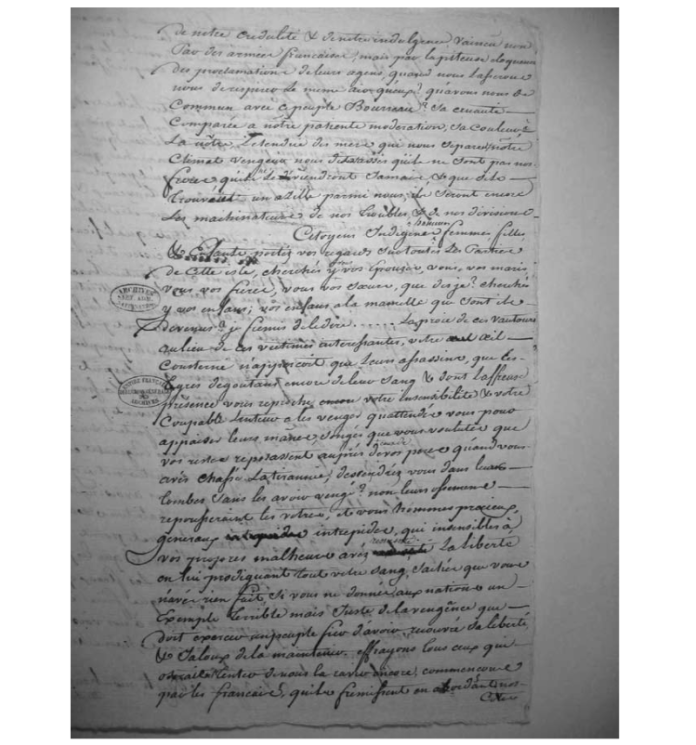 de notre credulité & de notre indulgence; Vaincu non
Par des armées francaises, mais par la piteuse eloquence
des proclamations de leurs agens, quand nous lasserons
nous de respirer le meme air qu'eux? qu'avons nous de
Commun avec ce peuple Bourreau? Sa cruauté
Comparée a nôtre patiente moderation, sa Couleur à
La nôtre Letendue des mers qui nous separent, nôtre
Climat vengeur nous disent assés qu'ils ne sont pas nos
freres qu'ils ne le deviendront Jamais & que s'ils
trouvent un azille parmi nous, ils seront encore
Les machinateurs de nos troubles & de nos divisions
Citoyens Indigenes hommes, femmes, filles
& Enfants portés vos regards sur toutes Les Parties
de Cette isle, cherchés y vos Epouses, vous, vos maris
vous, vos freres, vous vos sœurs, que dis je? cherchés
y vos enfans, vos enfans a la mamelle que sont ils
devenus? je fremis de le dire ..... La proie de ces vautours
au lieu de ces victimes interessantes, votre œil
Consterné n'apperçoit que leurs assassins, que les
tigres degoutans encore de leur sang & dont l'affreuse
présence vous reproche votre insensibilité & votre
Coupable lenteur a les venger qu'attendés vous pour
appaiser leurs manes, songés que vous voulutés que
vos restes reposassent auprès de vos peres quand vous
avés chassé La tirannie; descendrés vous dans leurs
tombes sans les avoir vengé? non leurs ossemens
repousseraient les votres, et vous hommes précieux,
généraux intrepides, qui insensibles à
vos propres malheurs avés ressuscité La liberté
en lui prodiguant tout votre sang, sachés que vous
n'avés rien fait Si vous ne donnés aux nations un
Exemple terrible mais Juste de la vengence que
doit exercer un peuple fier d'avoir recouvré sa liberté,
& Jaloux de la maintenir, effrayons tous ceux qui
oseraient tenter de nous la ravir encore, commençons
par les francais, qu'ils fremissent en abordant nos
Cotes
ARCHIVES
ARCHIVES